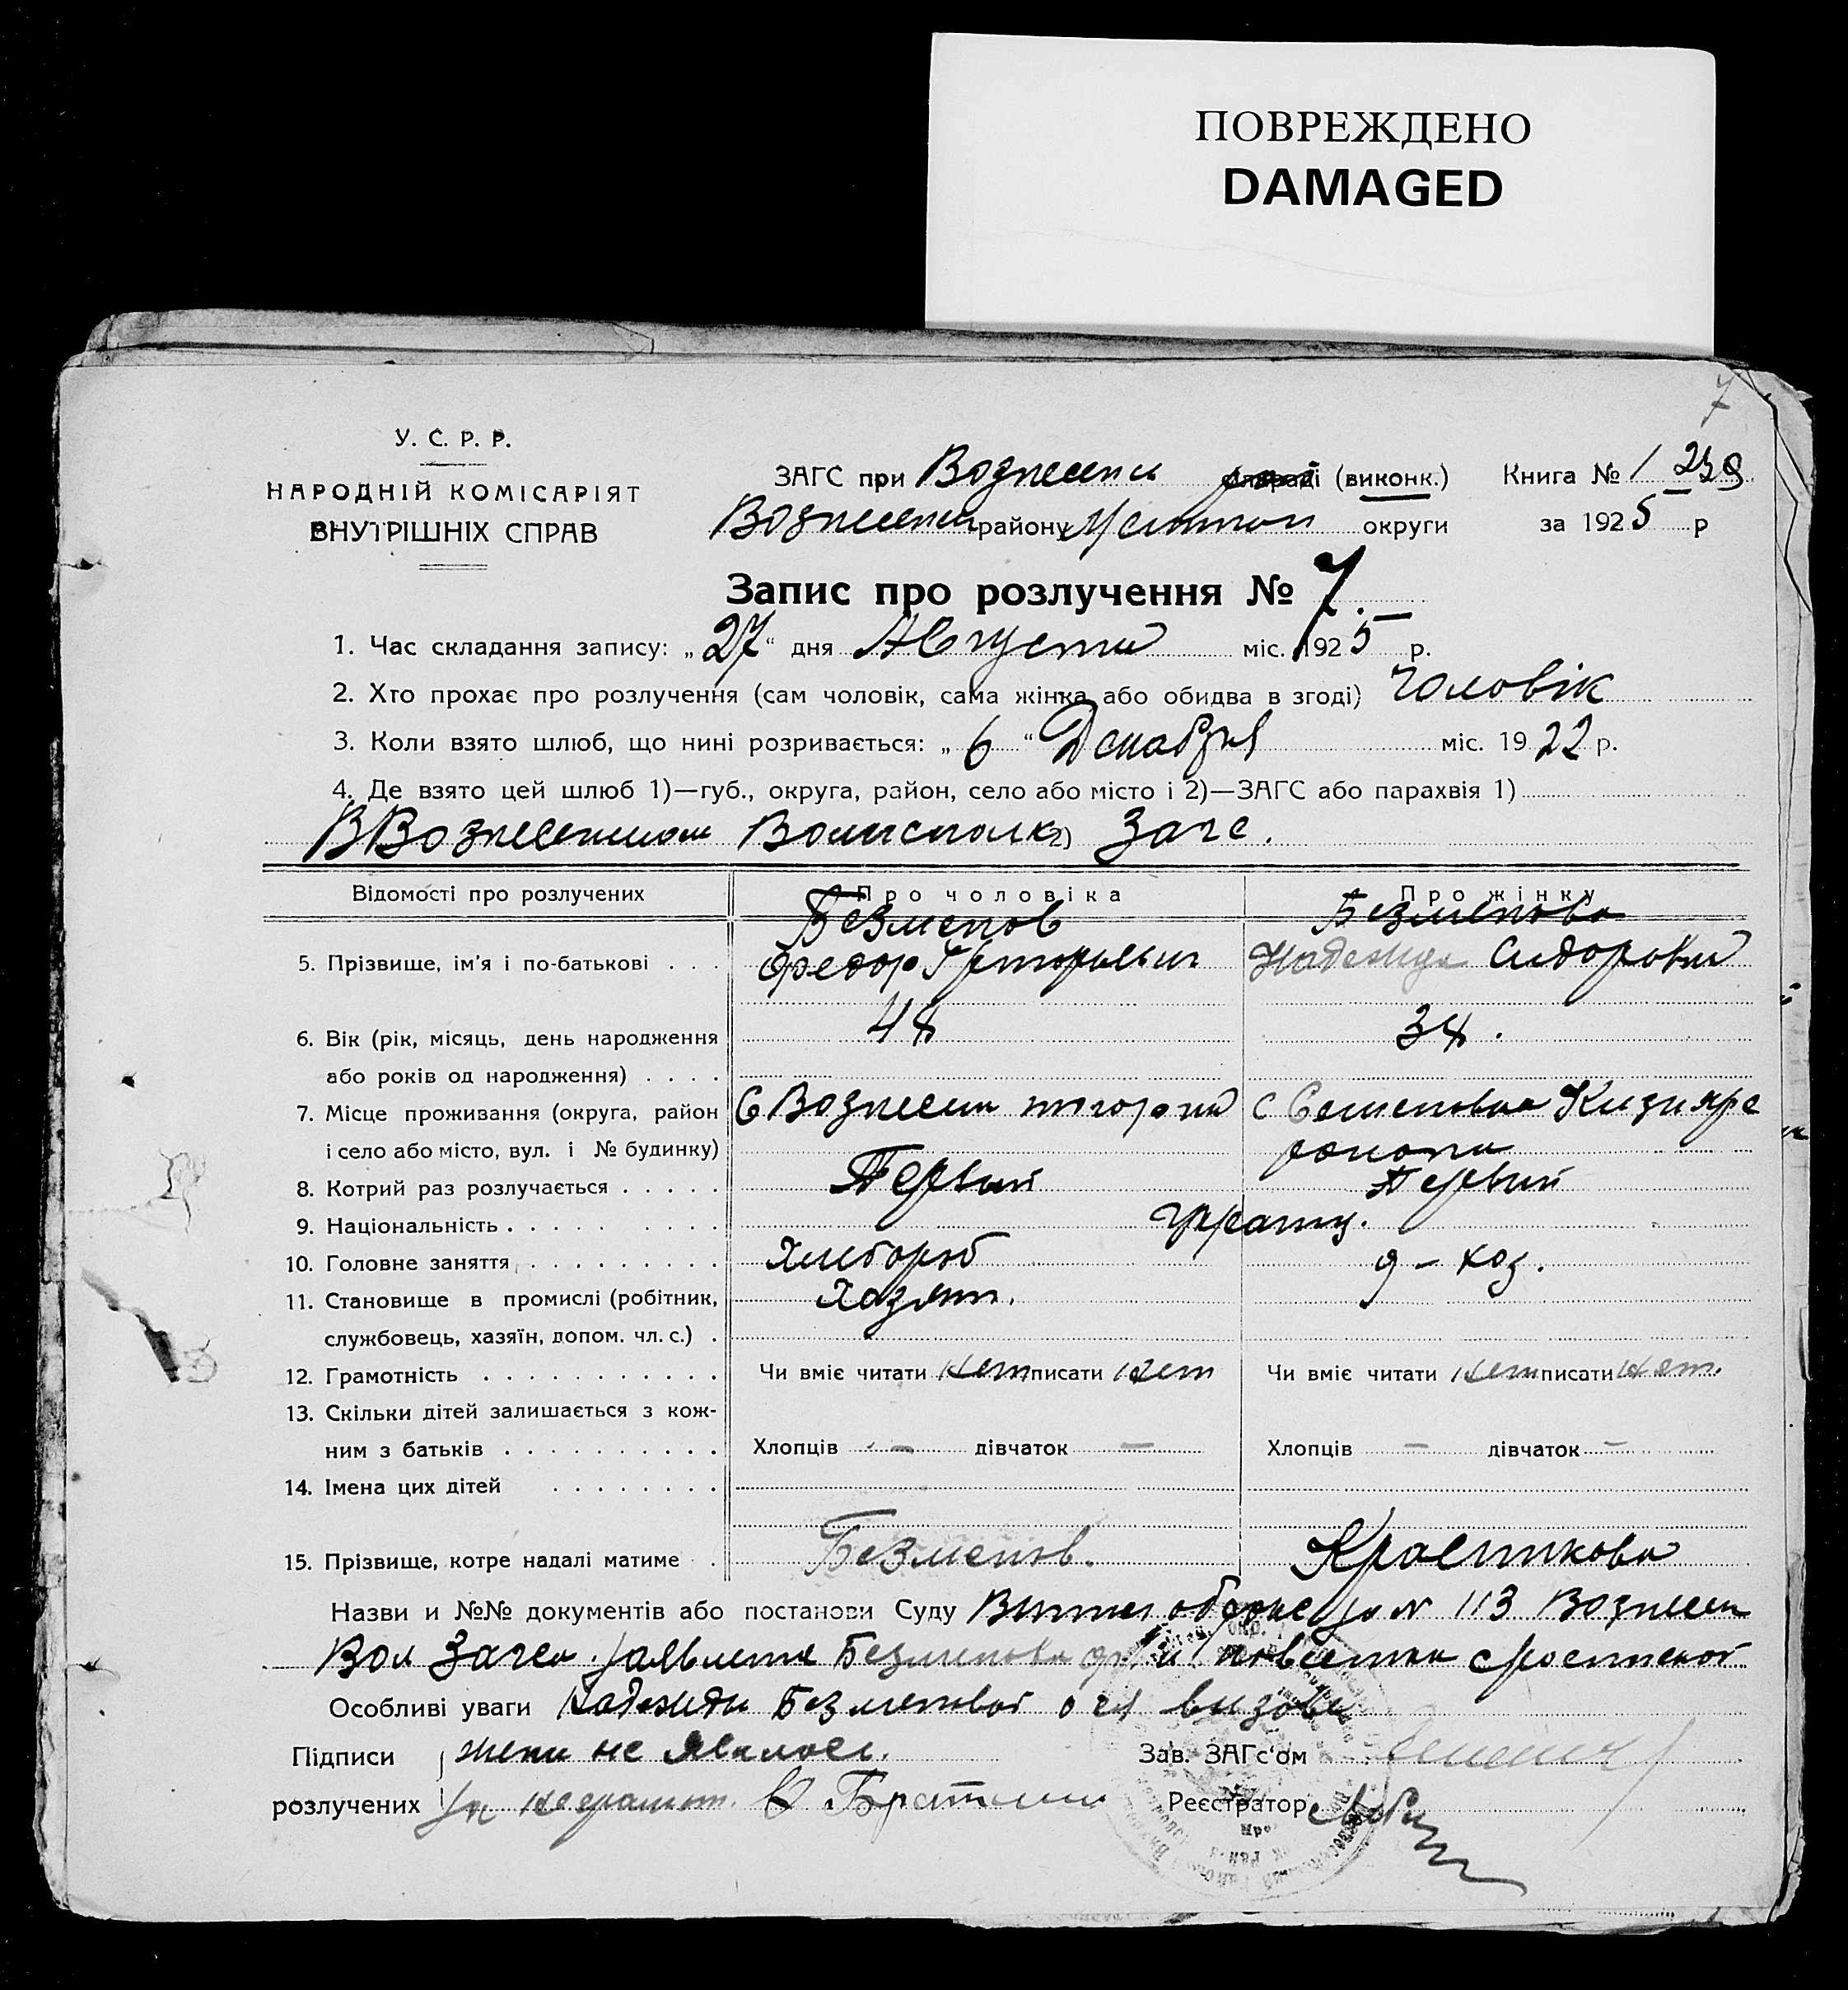 ПОВРЕЖДЕНО
DAMAGED
7
У. С. Р. Р.
НАРОДНІЙ КОМІСАРІЯТ
ВНУТРІШНІХ СПРАВ
ЗАГС при Вознесенск (виконк.) Книга № 1
Вознесенск району округи за 1925 р
Запис про розлучення № 7.
1. Час складання запису: „27“ дня Августа міс. 1925 р.
2. Хто прохає про розлучення (сам чоловік, сама жінка або обидва в згоді) Чоловік
3. Коли взято шлюб, що нині розривається: „6“ Декабря міс. 1922 р.
4. Де взято цей шлюб 1)—губ., округа, район, село або місто і 2)—ЗАГС або парахвія 1)
В Вознесенском Волисполк 2) Загс.
Відомості про розлучених Про чоловіка Про жінку
Безменов Безменова
5. Прізвище, ім'я і по-батькові . . . Федор Григорьевич Надежда Сидоровна
6. Вік (рік, місяць, день народження
або років од народження) . . . .
7. Місце проживання (округа, район С Вознесенк с Семеновка Кизияре
і село або місто, вул. і № будинку) района
8. Котрий раз розлучається . . . . . Первый Первый
9. Національність . . . . . . . . . Украинц.
10. Головне заняття . . . . . . . . . Хлебороб д – хоз.
11. Становище в промислі (робітник, Хазяин.
службовець, хазяїн, допом. чл. с.) .
12. Грамотність . . . . . . . . . . . Чи вміє читати нет писати нет Чи вміє читати нет писати нет.
13. Скільки дітей залишається з кож-
ним з батьків . . . . . . . . . . Хлопців – дівчаток – Хлопців – дівчаток –
14. Імена цих дітей . . . . . . . .
15. Прізвище, котре надалі матиме . Безменов. Красникова
Назви и №№ документів або постанови Суду Выпись о браке за № 113 Вознесен
Вол Загса. заявление Безменова и повестка с роспиской
Особливі уваги Надежды Безменовой о ея вызове
Підписи жена не явилась.
розлучених За неграмот.
Зав. ЗАГс'ом
Реєстратор